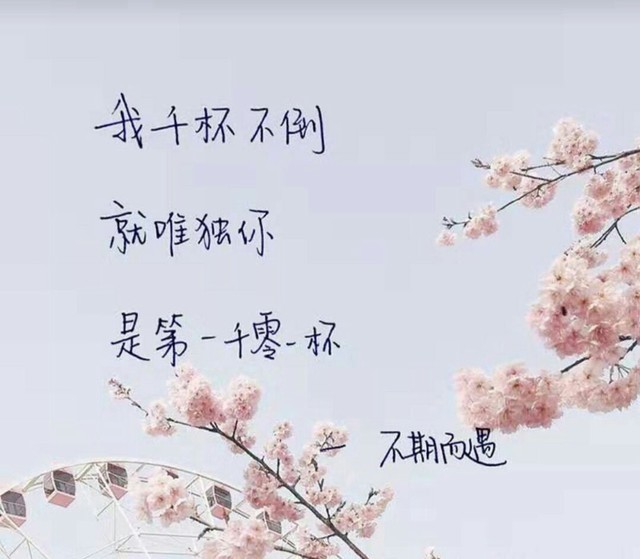 我千杯不倒
就唯独你
是第一千零一杯
— 不期而遇